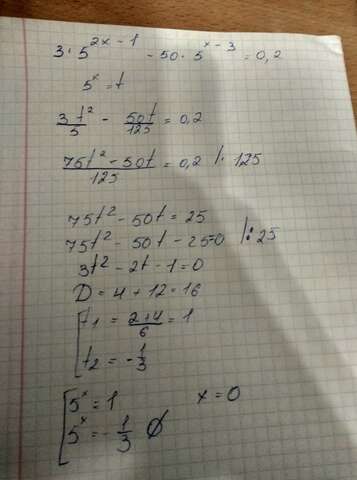 3 · 5^(2x-1) - 50 · 5^(x-3) = 0,2
5^x = t
3t²/5 - 50t/125 = 0,2
(75t² - 50t)/125 = 0,2 |· 125
75t² - 50t = 25
75t² - 50t - 25=0 |: 25
3t² - 2t - 1=0
D = 4 + 12 = 16
[ t₁ = (2+4)/6 = 1
t₂ = -1/3
[ 5^x = 1 x = 0
5^x = -1/3 ∅